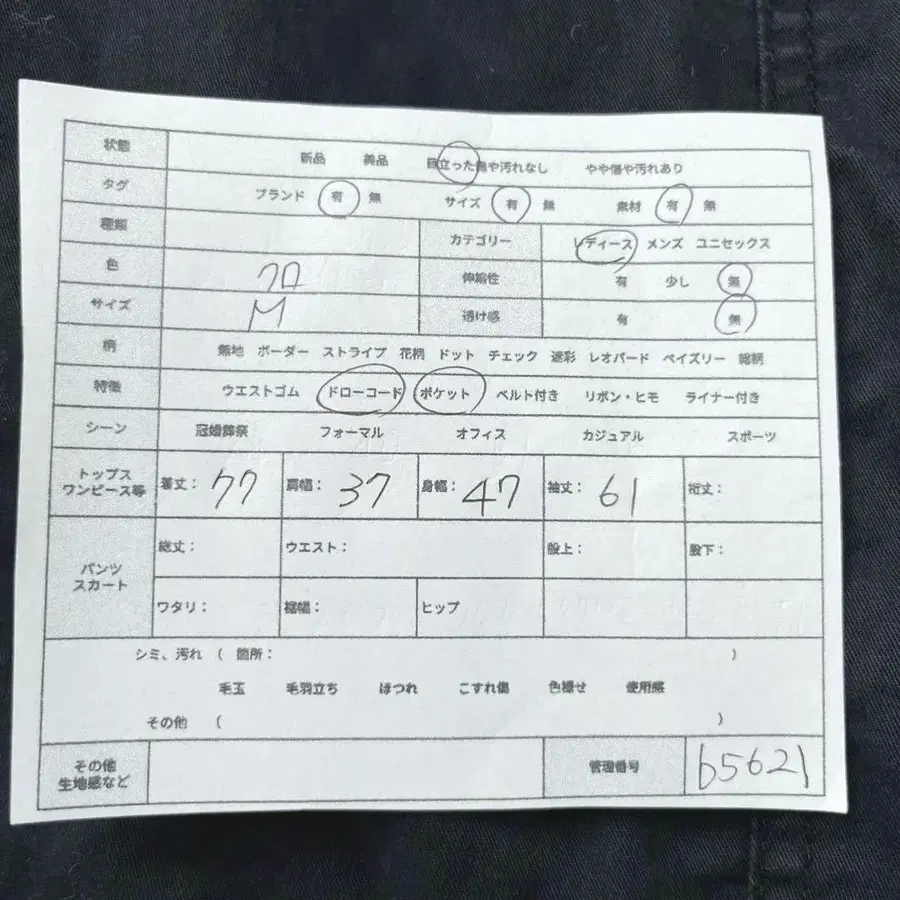 状態 新品 美品 目立った傷や汚れなし やや傷や汚れあり
タグ ブランド 有 無 サイズ 有 無 素材 有 無
種類 カテゴリー レディース メンズ ユニセックス
色 クロ 伸縮性 有 少し 無
サイズ M 透け感 有 無
柄 無地 ボーダー ストライプ 花柄 ドット チェック 迷彩 レオパード ペイズリー 総柄
特徴 ウエストゴム ドローコード ポケット ベルト付き リボン・ヒモ ライナー付き
シーン 冠婚葬祭 フォーマル オフィス カジュアル スポーツ
トップス
ワンピース等 着丈: 77 肩幅: 37 身幅: 47 袖丈: 61 裄丈:
パンツ
スカート 総丈: ウエスト: 股上: 股下:
ワタリ: 裾幅: ヒップ
シミ、汚れ ( 箇所: )
毛玉 毛羽立ち ほつれ こすれ傷 色褪せ 使用感
その他 ( )
その他
生地感など 管理番号 65621